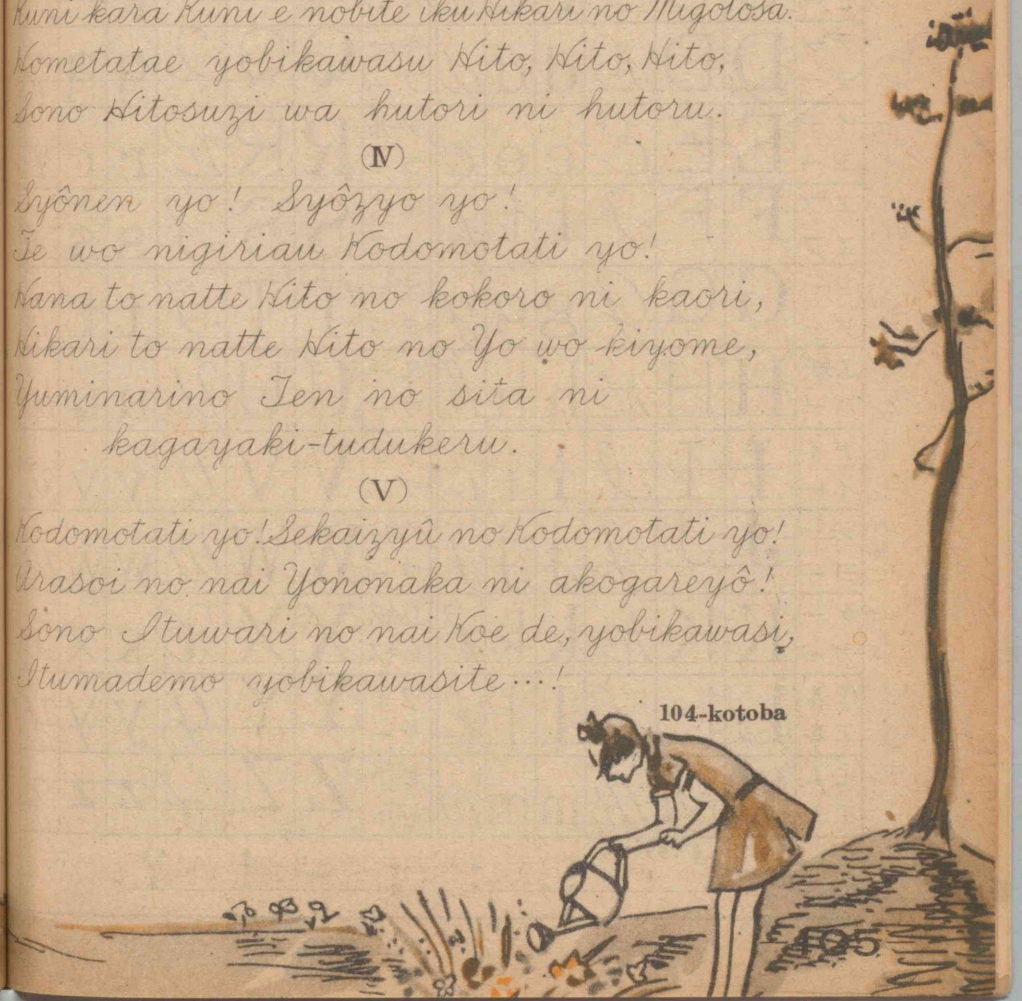 Kuni kara Kuni e nobite iku Hikari no Migotosa.
Hometatae yobikawasu Hito, Hito, Hito,
Sono Hitosuzi wa hutori ni hutoru.
(IV)
Syônen yo! Syôzyo yo!
Te wo nigiriau Kodomotati yo!
Hana to natte Hito no kokoro ni kaori,
Hikari to natte Hito no Yo wo kiyome,
Yuminarino Ten no sita ni
kagayaki-tudukeru.
(V)
Kodomotati yo! Sekaizyû no Kodomotati yo!
Arasoi no nai Yononaka ni akogareyô!
Sono Ituwari no nai Koe de, yobikawasi,
Itumademo yobikawasite…!
104-kotoba
105